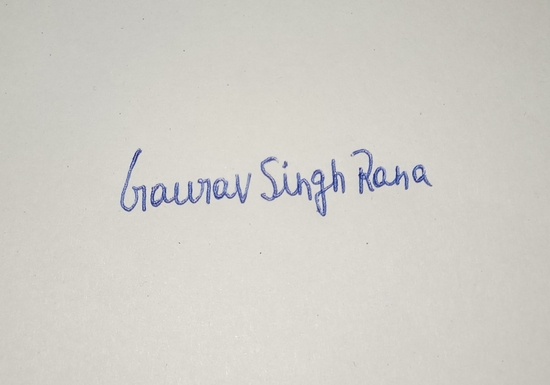 Gaurav Singh Rana